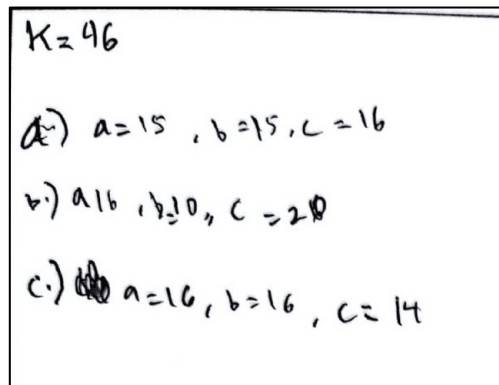 K=46
a.) a=15, b=15, c=16
b.) a16, b=10, c=20
c.) a=16, b=16, c=14